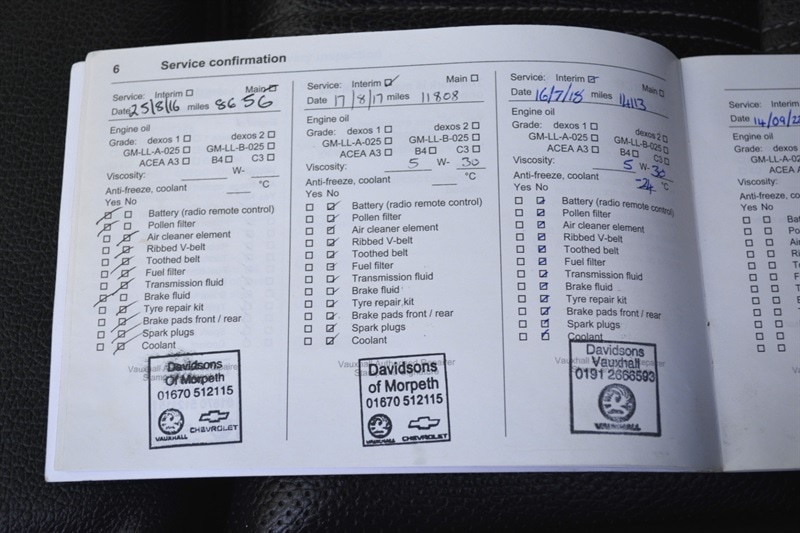 6 Service confirmation
Service: Interim ☐ Main ☑
Date 25/8/16 miles 8656
Engine oil
Grade: dexos 1 ☐ dexos 2 ☐
GM-LL-A-025 ☐ GM-LL-B-025 ☐
ACEA A3 ☐ B4 ☐ C3 ☐
Viscosity: W-
Anti-freeze, coolant °C
Yes No
Battery (radio remote control)
Pollen filter
Air cleaner element
Ribbed V-belt
Toothed belt
Fuel filter
Transmission fluid
Brake fluid
Tyre repair kit
Brake pads front / rear
Spark plugs
Coolant
Davidsons
Of Morpeth
01670 512115
VAUXHALL CHEVROLET
Service: Interim ☑ Main ☐
Date 17/8/17 miles 11808
Engine oil
Grade: dexos 1 ☐ dexos 2 ☐
GM-LL-A-025 ☐ GM-LL-B-025 ☐
ACEA A3 ☐ B4 ☐ C3 ☐
Viscosity: 5 W- 30
Anti-freeze, coolant °C
Yes No
Battery (radio remote control)
Pollen filter
Air cleaner element
Ribbed V-belt
Toothed belt
Fuel filter
Transmission fluid
Brake fluid
Tyre repair kit
Brake pads front / rear
Spark plugs
Coolant
Davidsons
of Morpeth
01670 512115
VAUXHALL CHEVROLET
Service: Interim ☑ Main ☐
Date 16/7/18 miles 14113
Engine oil
Grade: dexos 1 ☐ dexos 2 ☐
GM-LL-A-025 ☐ GM-LL-B-025 ☐
ACEA A3 ☐ B4 ☐ C3 ☐
Viscosity: 5 W- 30
Anti-freeze, coolant -24 °C
Yes No
Battery (radio remote control)
Pollen filter
Air cleaner element
Ribbed V-belt
Toothed belt
Fuel filter
Transmission fluid
Brake fluid
Tyre repair kit
Brake pads front / rear
Spark plugs
Coolant
Davidsons
Vauxhall
0191 2666593
VAUXHALL
Service: Interim
Date 14/09/
Engine oil
Grade: dexos
GM-LL-A-
ACEA A
Viscosity:
Anti-freeze,
Yes No